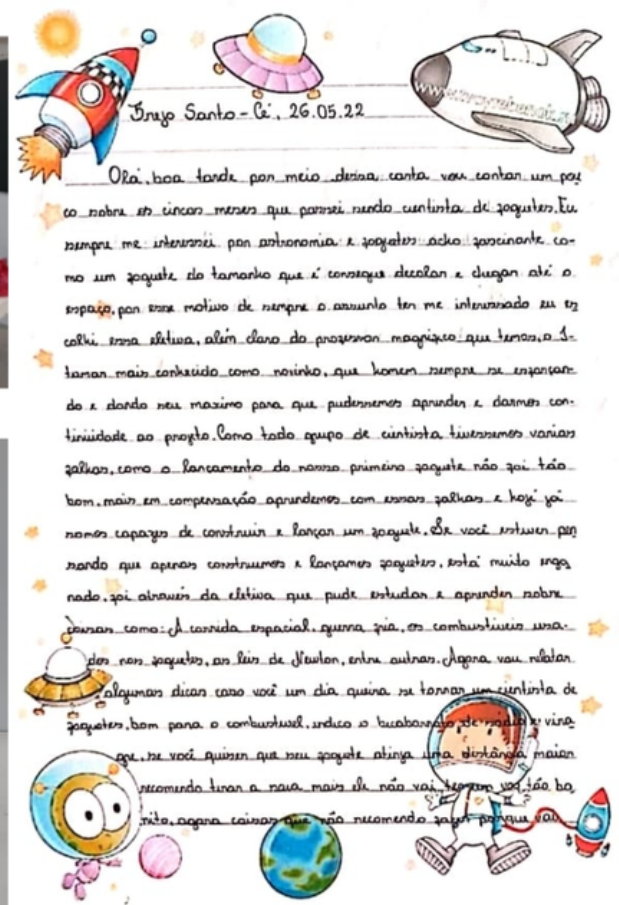 Brejo Santo - Ce, 26.05.22
Olá, boa tarde por meio dessa carta vou contar um pou
co sobre os cincos meses que passei sendo cientista de foguetes. Eu
sempre me interessei por astronomia e foguetes acho fascinante co-
mo um foguete do tamanho que é consegue decolar e chegar até o
espaço, por esse motivo de sempre o assunto ter me interessado eu es
colhi essa eletiva, além claro do professor magnifico que temos, o I-
tamar mais conhecido como novinho, que homem sempre se esforçan-
do e dando seu maximo para que pudessemos aprender e darmos con-
tinuidade ao projto. Como todo grupo de cientista tivessemos varias
falhas, como o lançamento do nosso primeiro foguete não foi tão
bom, mais em compensação aprendemos com essas falhas e hoje já
somos capazes de construir e lançar um foguete. Se você estiver pen
sando que apenas construimos e lançamos foguetes, está muito enga
nado, foi através da eletiva que pude estudar e aprender sobre
coisas como: A corrida espacial, guerra fria, os combustíveis usa-
dos nos foguetes, as leis de Newton, entre outras. Agora vou relatar
algumas dicas caso você um dia queira se tornar um cientista de
foguetes, bom para o combustivel, indico o bicabornato de sodio e vina
gre, se você quiser que seu foguete atinja uma distância maior
recomendo tirar a saia mais ele não vai ter um voo tão bo
nito, agora coisas que não recomendo fazer porque vai